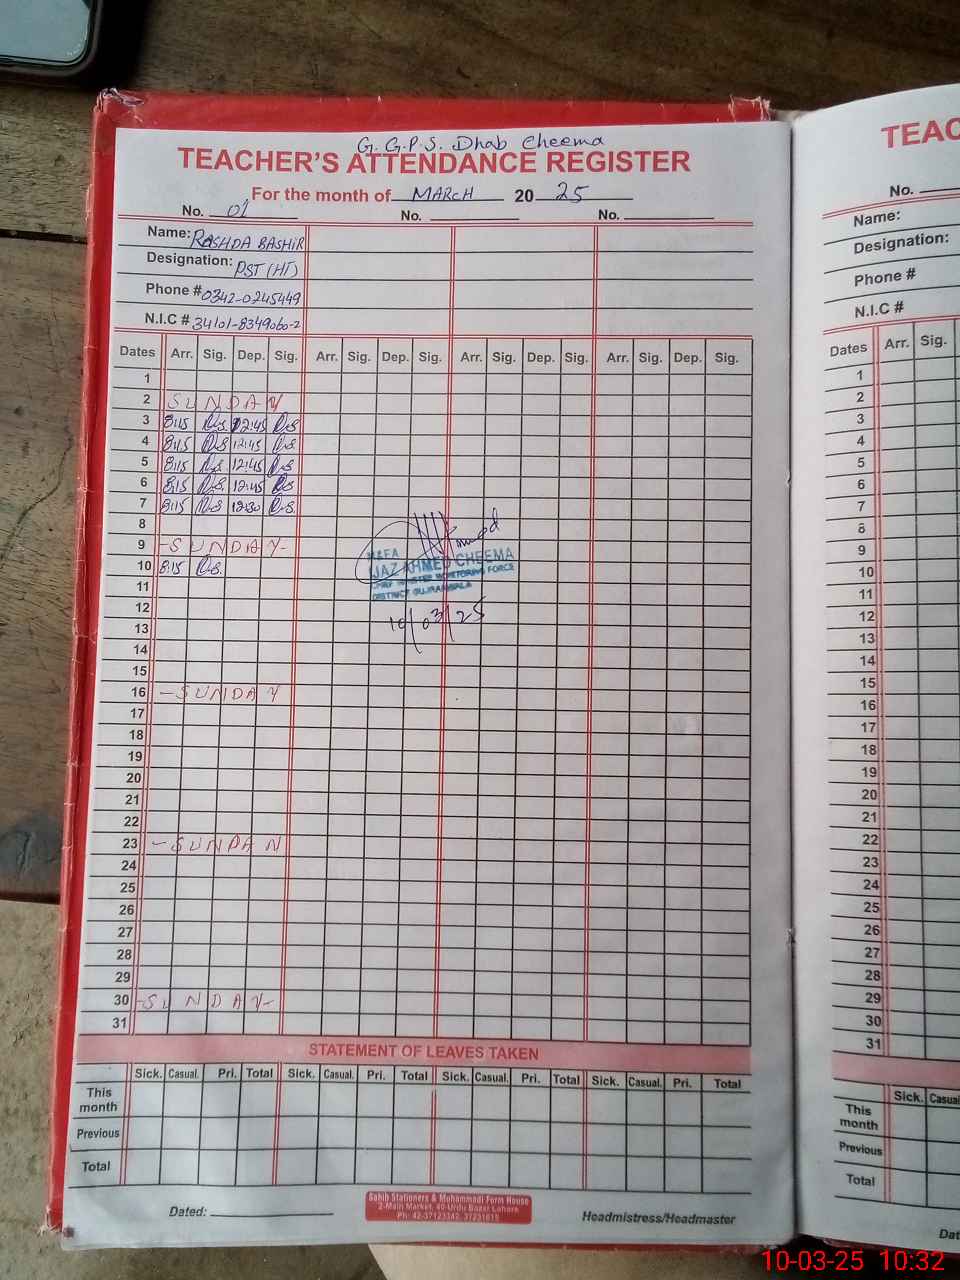 G.G.P.S. Dhab Cheema
TEACHER'S ATTENDANCE REGISTER
For the month of MARCH 20 25
No. 01 No. No.
Name: RASHDA BASHIR
Designation: PST (HT)
Phone # 0342-0245449
N.I.C # 34101-8349060-2
Dates Arr. Sig. Dep. Sig. Arr. Sig. Dep. Sig. Arr. Sig. Dep. Sig. Arr. Sig. Dep. Sig.
1
2 SUNDAY
3 8:15 R.s. 12:45 R.s.
4 8:15 R.s. 12:45 R.s.
5 8:15 R.s. 12:45 R.s.
6 8:15 R.s. 12:45 R.s.
7 8:15 R.s. 12:30 R.s.
8
9 -SUNDAY-
10 8:15 R.s.
11
12
13
14
15
16 -SUNDAY
17
18
19
20
21
22
23 -SUNDAN
24
25
26
27
28
29
30 -SUNDAY-
31
M&EA
IJAZ AHMED CHEEMA
CHIEF MINISTER MONITORING FORCE
DISTRICT GUJRANWALA
10/03/25
STATEMENT OF LEAVES TAKEN
Sick. Casual. Pri. Total Sick. Casual. Pri. Total Sick. Casual. Pri. Total Sick. Casual. Pri. Total
This month
Previous
Total
Dated:
Sahib Stationers & Mohammadi Form House
2-Main Market, 40-Urdu Bazar Lahore
Ph: 42-37123342, 37231615
Headmistress/Headmaster
TEAC
No.
Name:
Designation:
Phone #
N.I.C #
Dates Arr. Sig.
1
2
3
4
5
6
7
8
9
10
11
12
13
14
15
16
17
18
19
20
21
22
23
24
25
26
27
28
29
30
31
Sick. Casual
This month
Previous
Total
Dat
10-03-25 10:32